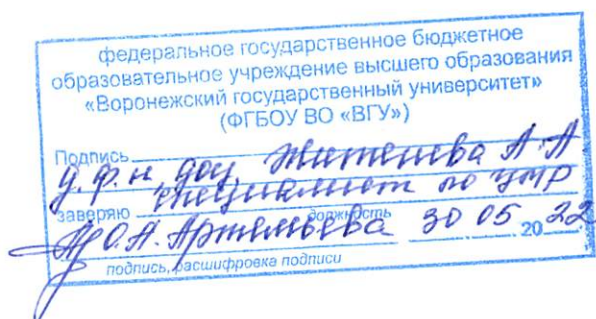 федеральное государственное бюджетное
образовательное учреждение высшего образования
«Воронежский государственный университет»
(ФГБОУ ВО «ВГУ»)
Подпись д.ф.н, доц. Житенева А.А
заверяю специалист по УМР
должность
О.А. Артемьева 30 05 2022
подпись, расшифровка подписи